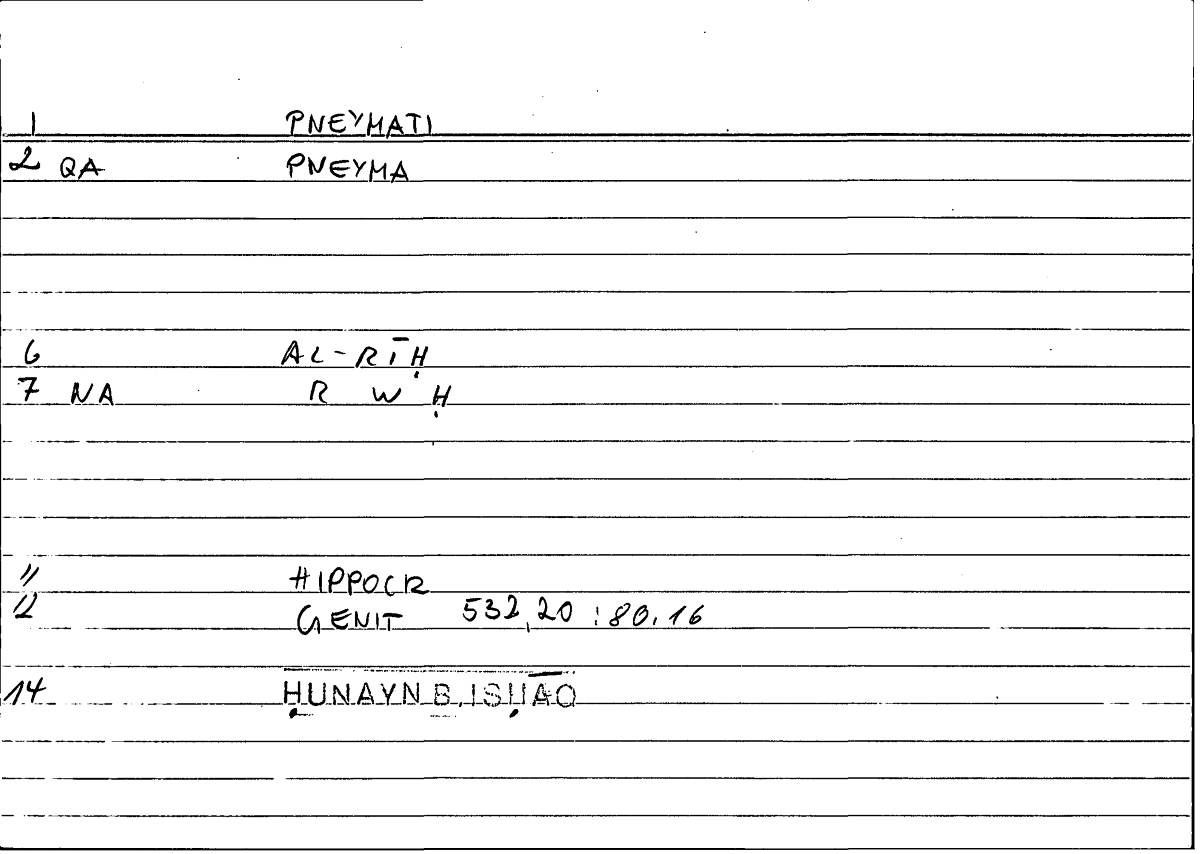 1 PNEYMATI
2 QA PNEYMA
6 AL-RĪḤ
7 NA R W Ḥ
11 HIPPOCR
12 GENIT 532,20 : 80.16
14 ḤUNAYN B. ISḤĀQ